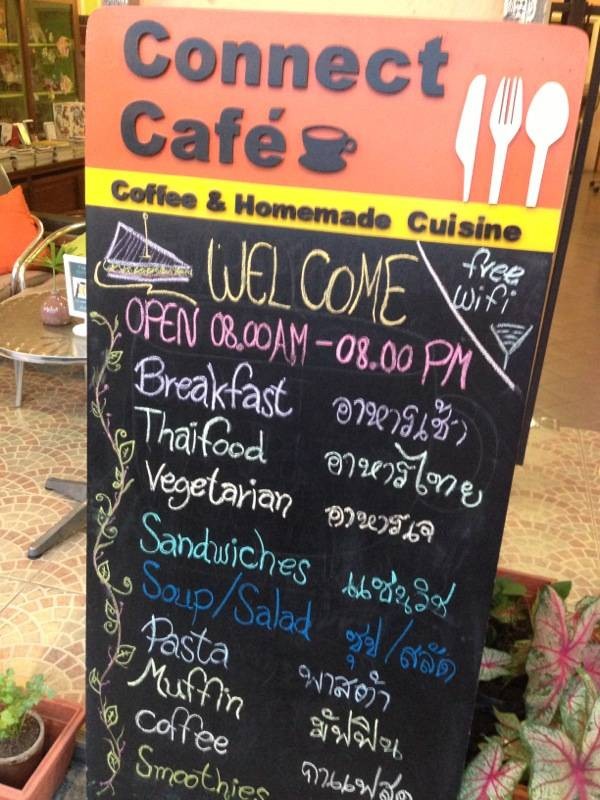 Connect
Café
Coffee & Homemade Cuisine
WELCOME
free
wifi
OPEN 08.00AM - 08.00 PM
Breakfast อาหารเช้า
Thaifood อาหารไทย
Vegetarian อาหารเจ
Sandwiches แซนวิช
Soup/Salad ซุป/สลัด
Pasta พาสต้า
Muffin มัฟฟิน
coffee กาแฟสด
Smoothies